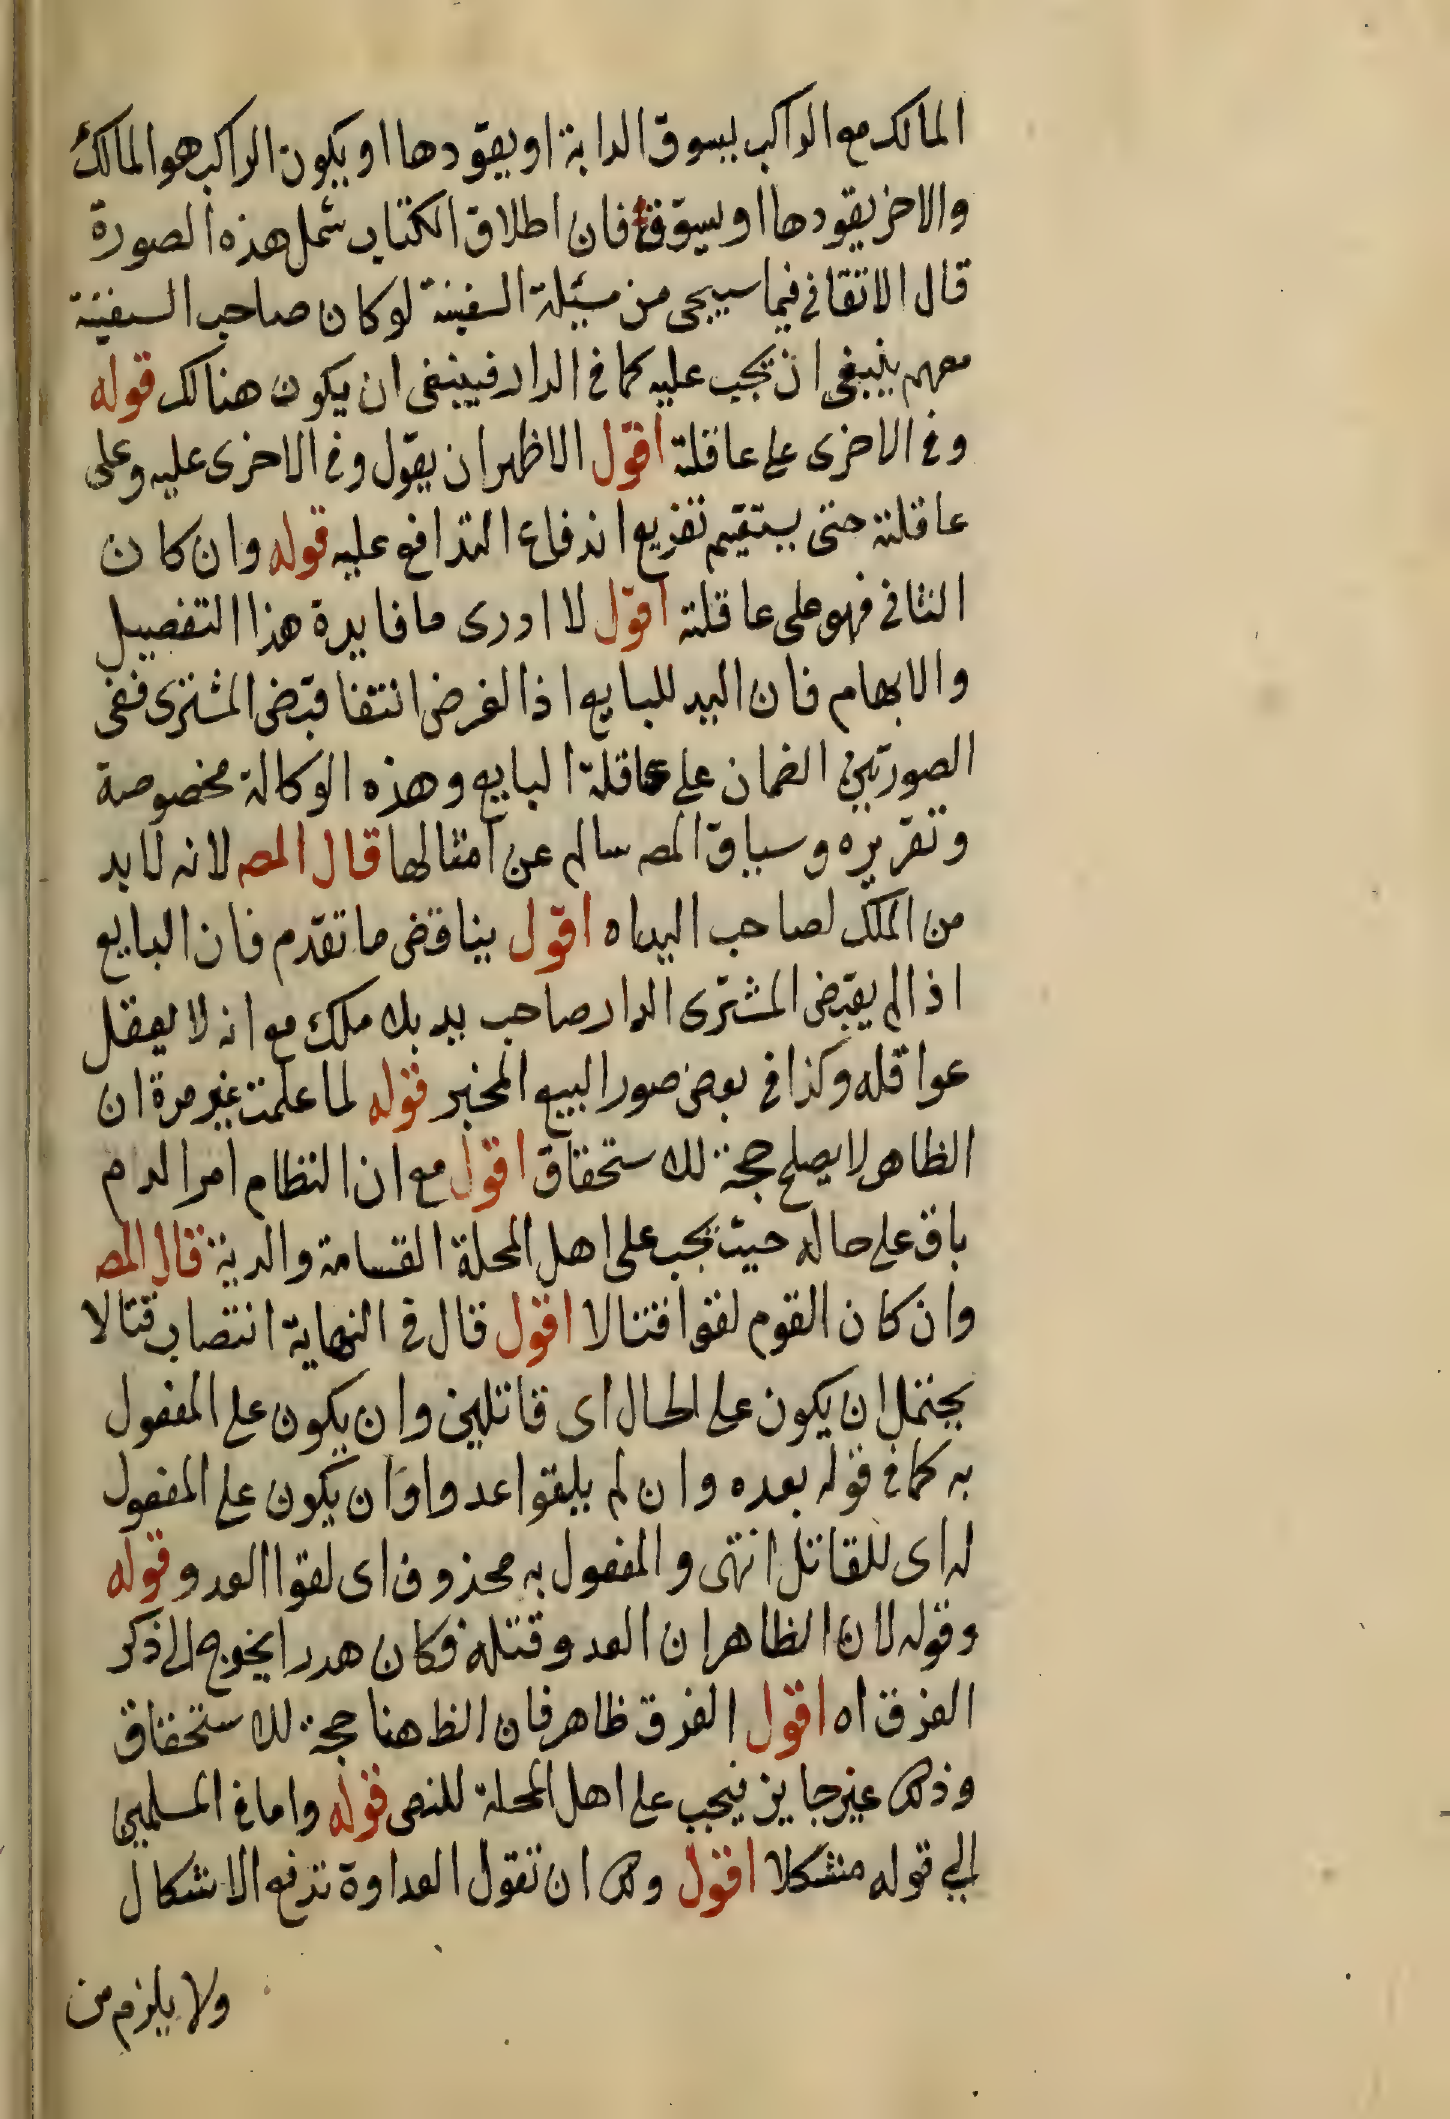 المالك مع الراكب يسوق الدابة او يقودها او يكون الراكب هو المالك
والاخر يقودها او يسوق فان اطلاق الكتاب شمل هذه الصورة
قال الاتقاني فيما سيجي من مسئلة السفينة لو كان صاحب السفينة
معهم ينبغي ان تجب عليه كما في الدار فينبغي ان يكون هنالك قوله
وفي الاخرى على عاقلة اقول الاظهر ان يقول وفي الاخرى عليه وعلى
عاقلته حتى يستقيم تفريع اندفاع التدافع عليه قوله وان كان
الثاني فهو على عاقلته اقول لا ادرى ما فايدة هذا التفصيل
والابهام فان اليد للبايع اذ الفرض انتفا قبض المشترى ففي
الصورتين الضمان على عاقلة البايع وهذه الوكالة مخصوصة
وتقريره وسياق المص سالم عن امثالها قال المص لانه لا بد
من الملك لصاحب اليد اه اقول يناقض ما تقدم فان البايع
اذا لم يقبض المشترى الدار صاحب يد بلا ملك مع انه لا يعقل
عواقله وكذا في بعض صور البيع المخير قوله لما علمت غير مرة ان
الظاهر لا يصلح حجة للاستحقاق اقول مع ان النظام امر الدم
باق على حاله حيث تجب على اهل المحلة القسامة والدية قال المص
وان كان القوم لقوا قتالا اقول قال في النهاية انتصاب قتالا
يحتمل ان يكون على الحال اى قاتلين وان يكون على المفعول
به كما في قوله بعده وان لم يلقوا عدوا وان يكون على المفعول
له اى للقاتل انتهى والمفعول به محذوف اى لقوا العدو قوله
وقوله لان الظاهر ان العدو قتله فكان هدرا يحوج الى ذكر
الفرق اه اقول الفرق ظاهر فان الظ هنا حجة للاستحقاق
وذلك غير جايز فيجب على اهل المحلة للنص قوله واما في المسلمين
الى قوله مشكلا اقول ولك ان تقول العداوة تدفع الاشكال
ولا يلزم من